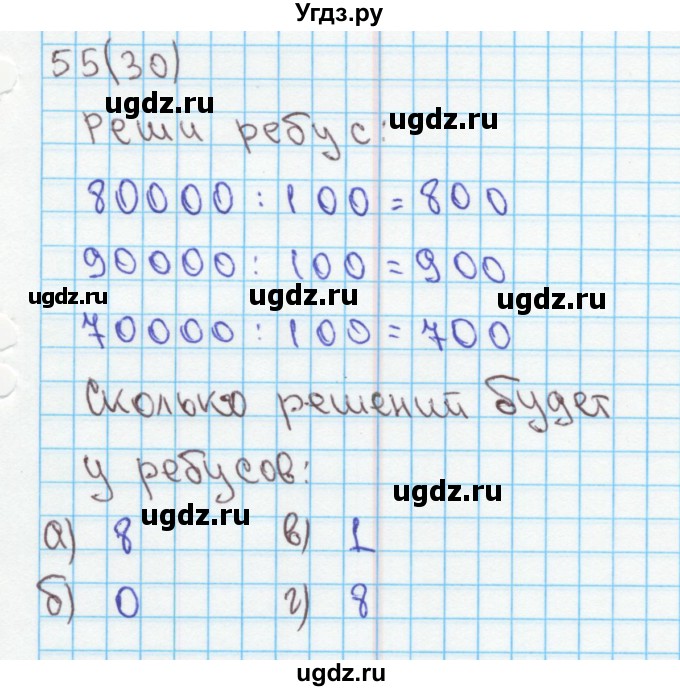 Угдз.ру
55(30)
ugdz.ru
Реши ребус:
ugdz.ru
80000 : 100 = 800
90000 : 100 = 900
ugdz.ru ugdz.ru ugdz.ru
70000 : 100 = 700
Сколько решений будет
у ребусов:
ugdz.ru
ugdz.ru
а) 8 в) 1
б) 0 г) 8
ugdz.ru